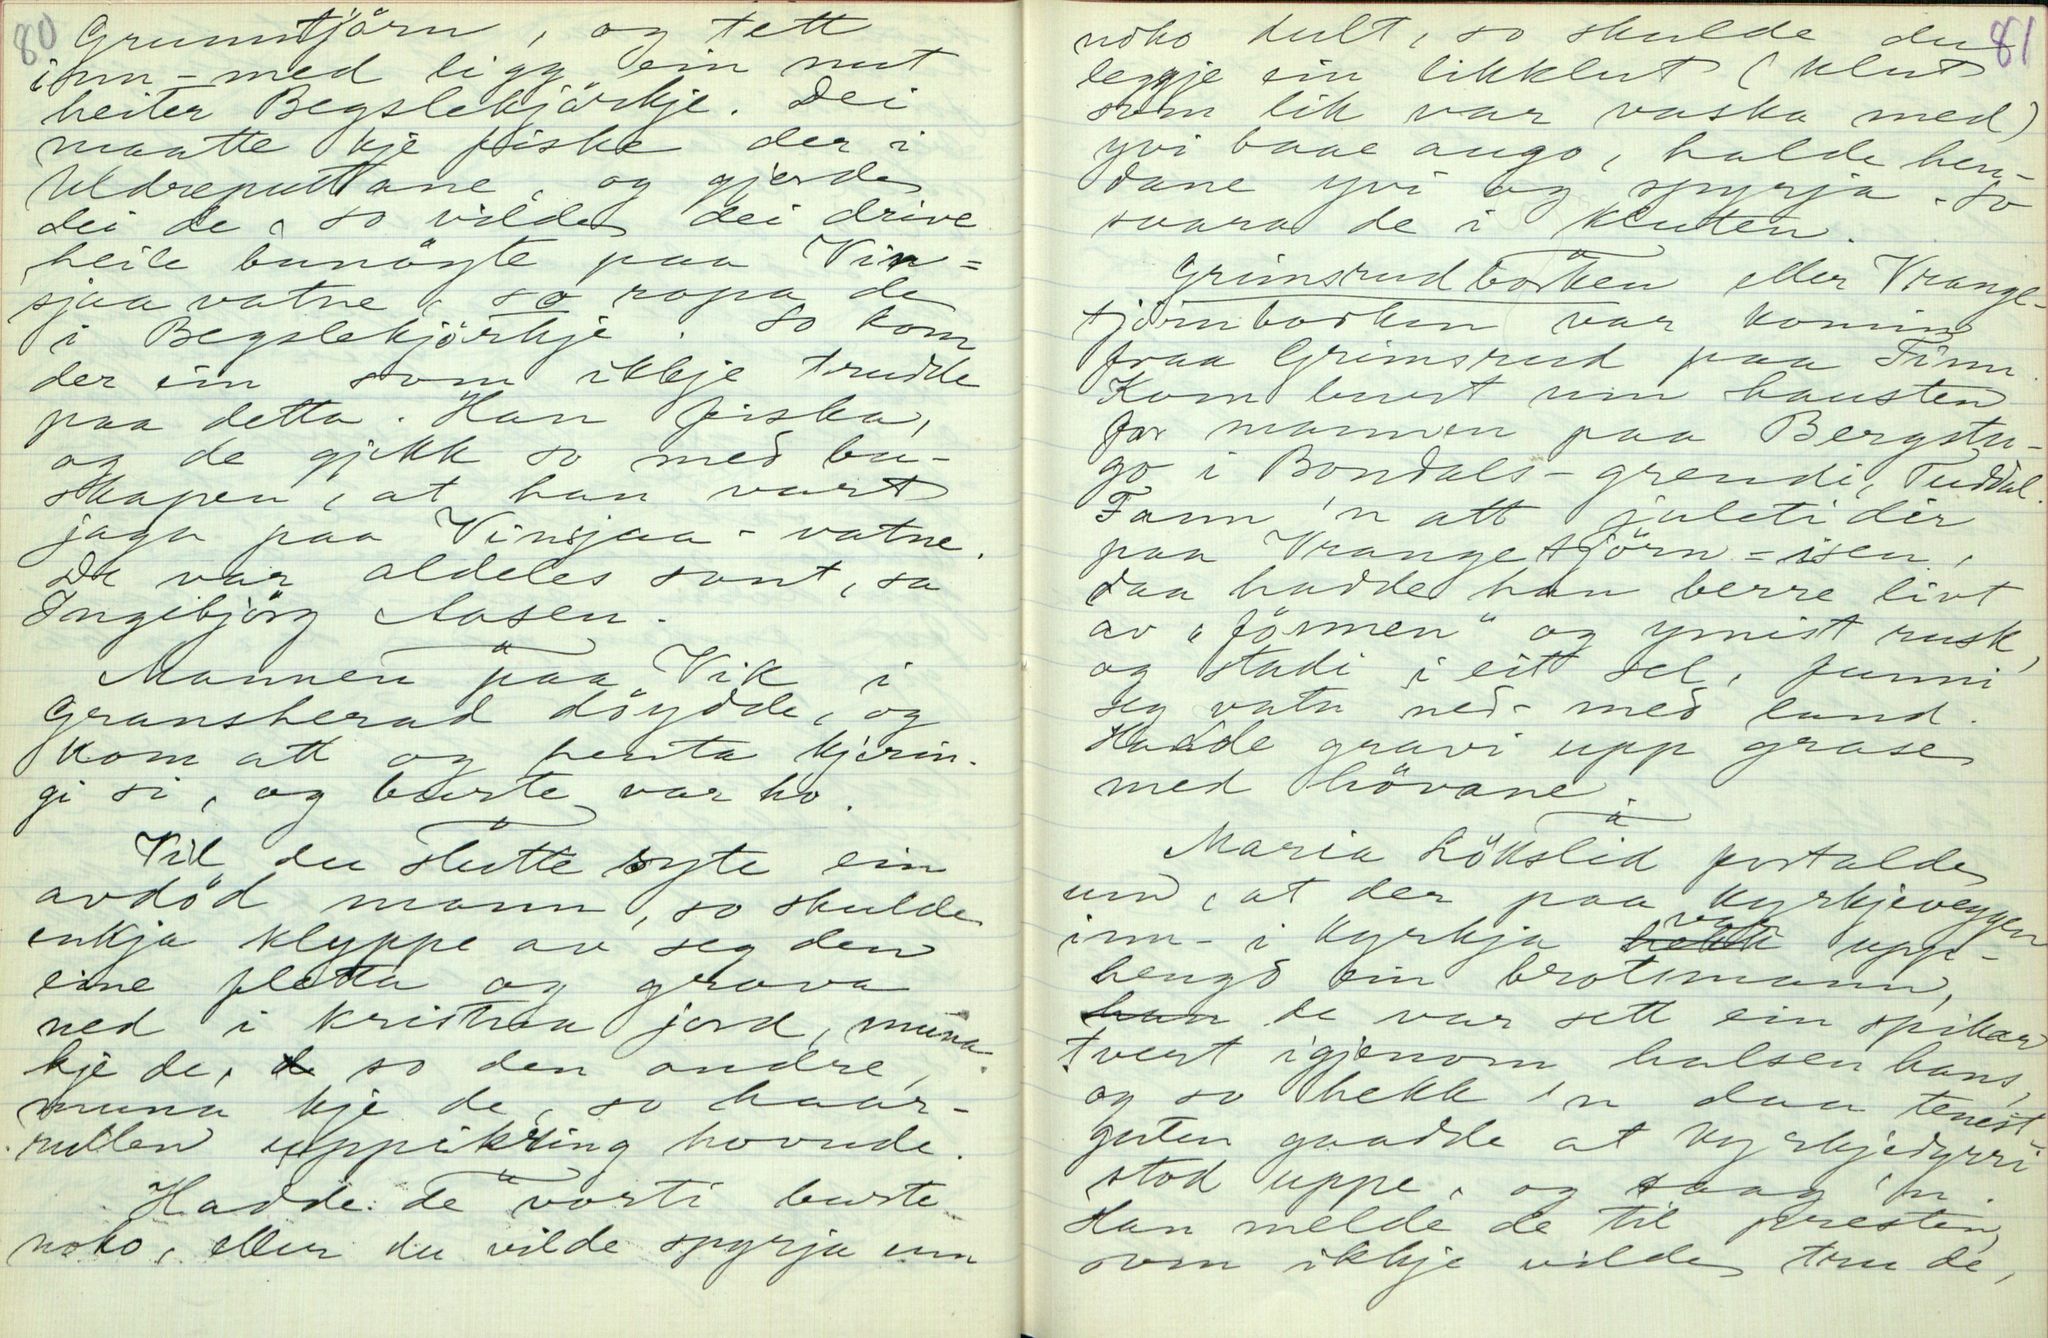 80
Grunntjörn, og tett
inn-med ligg ein nut
heiter Begslekjörkje. Dei
maatte kje fiske der i
Uldreputtane, og gjorde
dei de, so vilde dei drive
heile bunöyte paa Vin=
sjaavatne, so ropa de
i Begslekjörkje. So kom
der ein som ikkje trudde
paa detta. Han fiska,
og de gjekk so med bu-
skapen, at han vart
jaga paa Vinsjaa-vatne.
De var aldeles sant, sa
Ingebjörg Aasen.
Mannen paa Vik i
Gransherad döydde, og
kom att og henta kjerin-
gi si, og burte var ho.
Vil du slutte syte ein
avdöd mann, so skulde
enkja klyppe av seg den
eine fletta og grava
ned i kristna jord, muna
kje de, so den andre,
muna kje de, so haar-
rullen uppikring hovude.
Hadde de vorti burte
noko, eller du vilde spyrja um
81
noko dult, so skulde du
leggje ein likklut (klut
som lik var vaska med)
yvi baae augo, halde hen-
dane yvi og spyrja. So
svara de i kluten.
Grimsrudborken eller Vrange-
tjörnborken var komin
fraa Grimsrud paa Tinn.
Kom burt um hausten
for mannen paa Bergstu-
go i Bondals-grendi, Tuddal.
Fann 'n att juletider
paa Vrangetjörn-isen,
daa hadde han berre livt
av "förmen" og ymist rusk,
og stadi i eit sel, funni
seg vatn ned-med land.
Hadde gravi upp grase
med hövane.
Maria Lökslid fortalde
um, at der paa kyrkjeveggen
inn-i kyrkja var upp-
hengd ein brotsmann,
de var sett ein spikar
tvert igjenom halsen hans,
og so hekk 'n daa tenest-
guten gaadde at kyrkjedyrri
stod uppe, og saag 'n.
Han melde de til presten,
som ikkje vilde tru de,